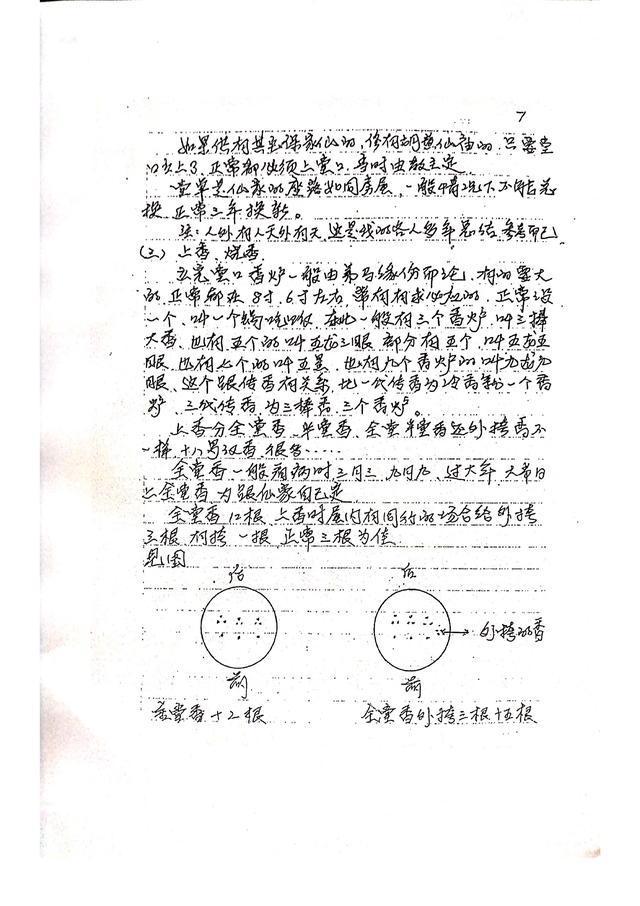 7
如果供有其它保家仙的,修有胡黄仙庙的,只要堂
口安上了,正常都必须上堂口,当时由教主定。
堂单是仙家的座落如同房屋,一般情况下不能总
换,正常三年换新。
注:人外有人天外有天,这是我的个人多年总结,参考而已
(二)上香、烧香。
立完堂口香炉一般由弟马缘份而论,有的要大
的,正常都办8寸、6寸左右,单有有求必应的,正常设
一个,叫一个,在此一般有三个香炉,叫三棒
大香,也有五个的叫五龙三眼,部分有五个,叫五龙五
眼,也有七个的叫五星,也有九个香炉的叫九龙九
眼,这个跟传香有关系,比一代传香为一个香
炉,三代传香,为三棒香,三个香炉。
上香分全堂香,半堂香,全堂半堂香还外挎香不
一样,十八罗汉香,很多……
全堂香一般看病时三月三、九月九、过大年、大节日
上全堂香,为跟仙家自己定。
全堂香12根,上香时屋内有同行的场合给外挎
三根,有挎一根,正常三根为佳
见图
后
后
外挎的香
前
前
全堂香十2根
全堂香外挎三根十五根